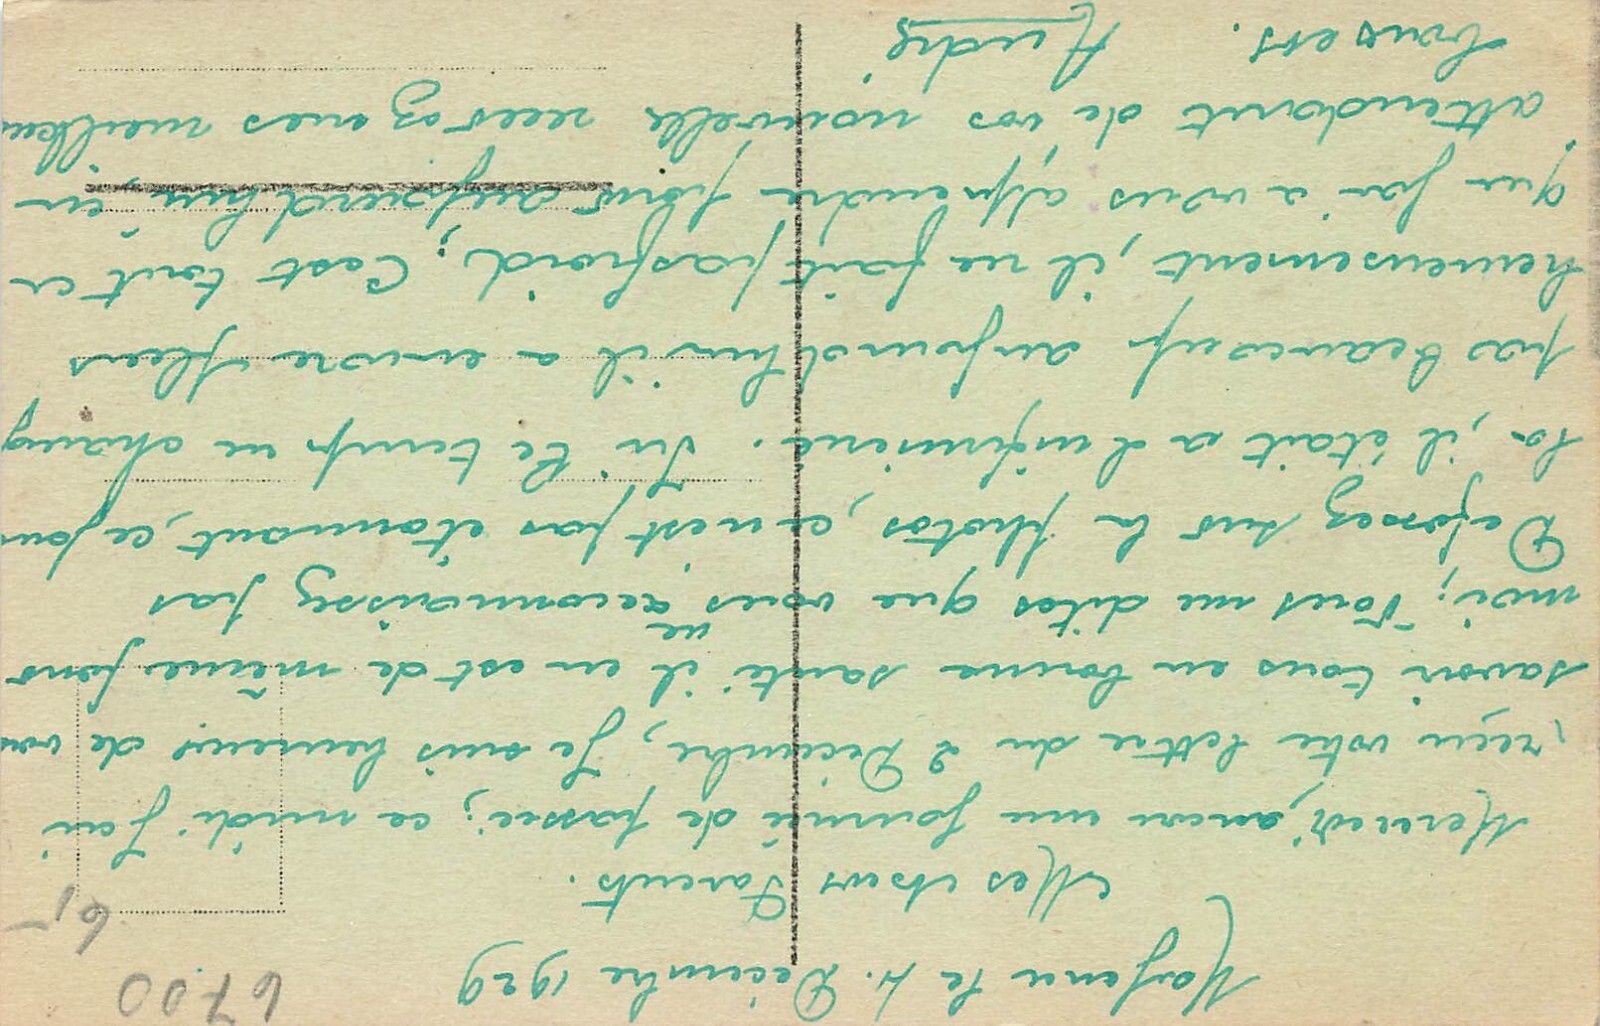 Mayence le 4. Décembre 1929
Mes chers Parents.
Mercredi, encore une journée de passée; ce midi j'ai
reçu votre lettre du 2 Décembre, Je suis heureux de vous
savoir tous en bonne santé il en est de même pour
moi; Vous me dites que vous ne reconnaissez pas
Dejossez sur la photos, ce n'est pas étonnant, ce jour
la, il était a l infirmerie. Ici le temps ne change
pas beaucoup aujourd hui il a encore pleus
heureusement, il ne fait pas froid; C'est tout ce
que j'ai a vous apprendre pour aujourd hui, en
attendant de vos nouvelle recevez mes meilleurs
baisers. André
6700
6,-